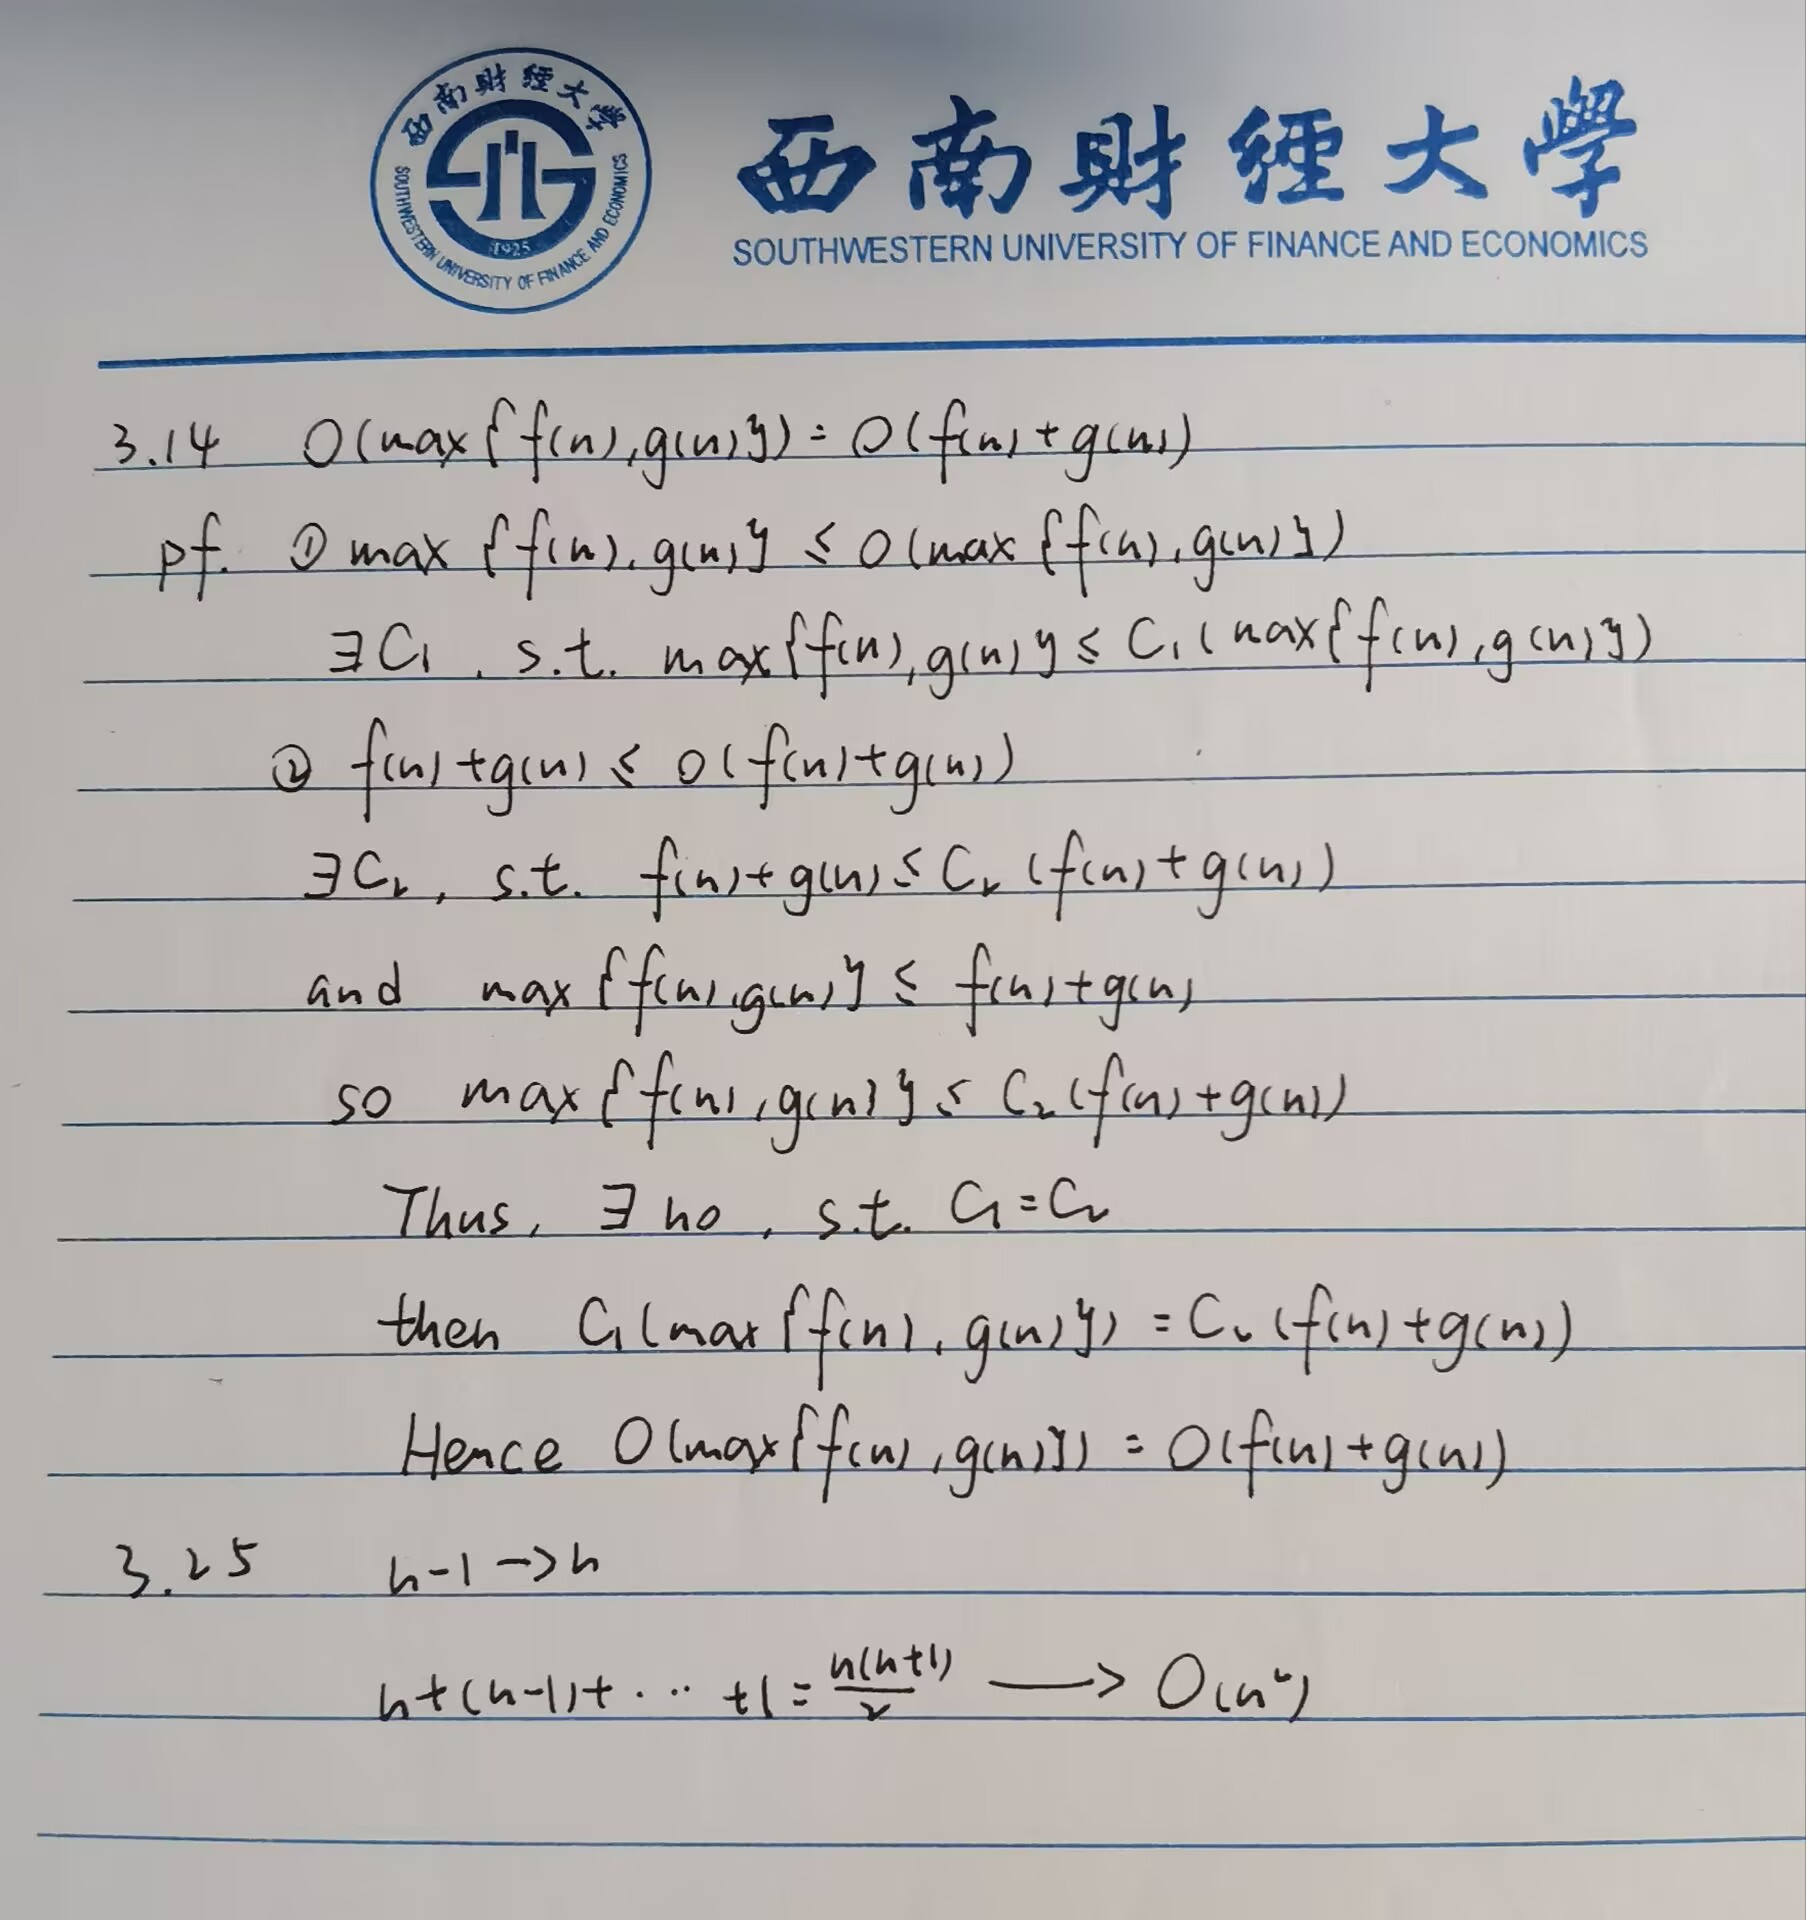 西南財經大學
SOUTHWESTERN UNIVERSITY OF FINANCE AND ECONOMICS
1925
西南財經大學
SOUTHWESTERN UNIVERSITY OF FINANCE AND ECONOMICS
3.14 O(max{f(n),g(n)}) = O(f(n)+g(n))
pf. ① max{f(n),g(n)} ≤ O(max{f(n),g(n)})
∃C₁, s.t. max{f(n),g(n)} ≤ C₁(max{f(n),g(n)})
② f(n)+g(n) ≤ O(f(n)+g(n))
∃C₂, s.t. f(n)+g(n) ≤ C₂(f(n)+g(n))
and max{f(n),g(n)} ≤ f(n)+g(n)
so max{f(n),g(n)} ≤ C₂(f(n)+g(n))
Thus, ∃ n0, s.t. C₁=C₂
then C₁(max{f(n),g(n)}) = C₂(f(n)+g(n))
Hence O(max{f(n),g(n)}) = O(f(n)+g(n))
3.25 n-1→n
n+(n-1)+...+1 = n(n+1)/2 → O(n²)